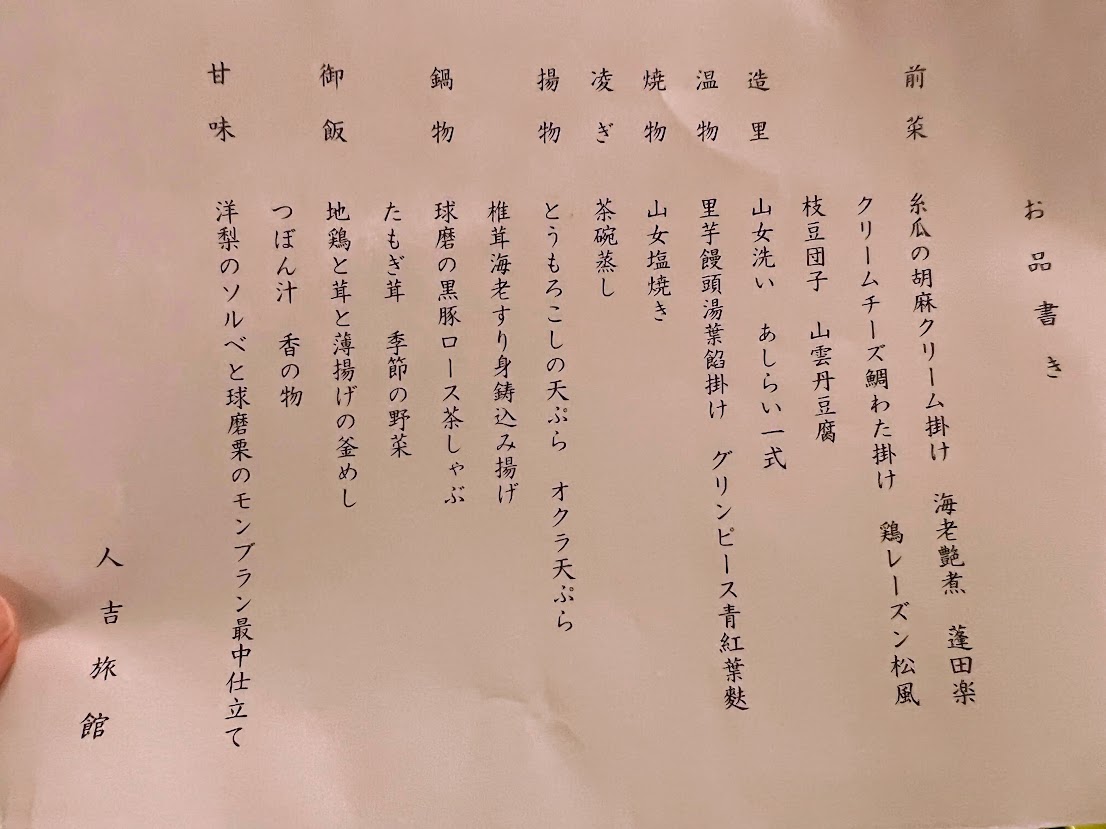 お品書き
前菜 糸瓜の胡麻クリーム掛け 海老艶煮 蓬田楽
クリームチーズ鯛わた掛け 鶏レーズン松風
枝豆団子 山雲丹豆腐
造里 山女洗い あしらい一式
温物 里芋饅頭湯葉餡掛け グリンピース青紅葉麩
焼物 山女塩焼き
凌ぎ 茶碗蒸し
揚物 とうもろこしの天ぷら オクラ天ぷら
椎茸海老すり身鋳込み揚げ
鍋物 球磨の黒豚ロース茶しゃぶ
たもぎ茸 季節の野菜
御飯 地鶏と茸と薄揚げの釜めし
つぼん汁 香の物
甘味 洋梨のソルベと球磨栗のモンブラン最中仕立て
人吉旅館